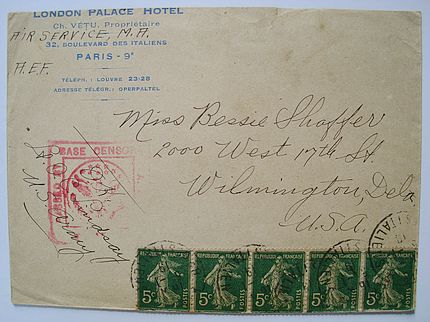 LONDON PALACE HOTEL
Ch. VÉTU, Propriétaire
AIR SERVICE, M.A.
32, BOULEVARD DES ITALIENS
PARIS - 9e
A.E.F.
TÉLÉPH : LOUVRE 23-28
ADRESSE TÉLÉGR : OPERPALTEL
Miss Bessie Shaffer
2000 West 17th St.
Wilmington, Del.
U.S.A.
BASE CENSOR
Lindsay
U.S. Army
REPUBLIQUE FRANÇAISE
5c POSTES
REPUBLIQUE FRANÇAISE
5c POSTES
REPUBLIQUE FRANÇAISE
5c POSTES
REPUBLIQUE FRANÇAISE
5c POSTES
REPUBLIQUE FRANÇAISE
5c POSTES